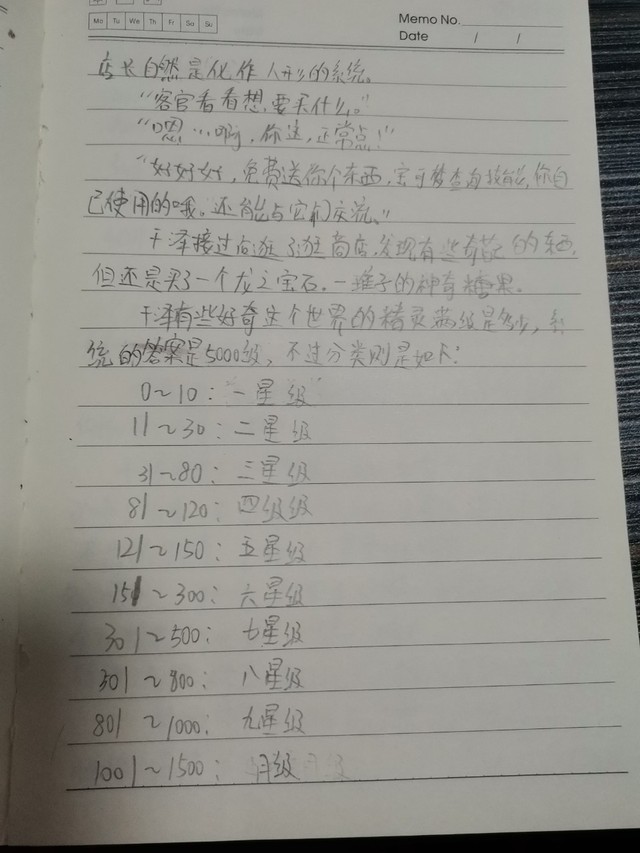 Memo No.
Mo Tu We Th Fr Sa Su
Date / /
店长自然是化作人形的系统。
“客官看看想要买什么。”
“嗯…啊，你这，正常点！”
“好好好，免费送你个东西，宝可梦查询技能，你自
己使用的哦。还能与它们交流。”
于泽接过后逛了逛商店，发现有些奇葩的东西，
但还是买了一个龙之宝石。一堆子的神奇糖果。
于泽有些好奇这个世界的精灵满级是多少，系
统的答案是5000级，不过分类则是如下：
0~10：一星级
11~30：二星级
31~80：三星级
81~120：四级级
121~150：五星级
151~300：六星级
301~500：七星级
301~800：八星级
801~1000：九星级
1001~1500：月级